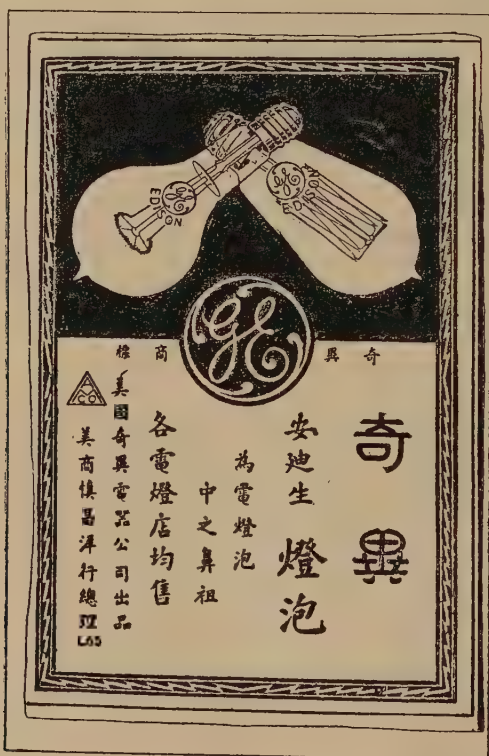 EDISON
EDISON
GE
奇異
商標
奇異
安迪生
燈泡
為電燈泡
中之鼻祖
各電燈店均售
美國奇異電器公司出品
美商慎昌洋行總理
L65